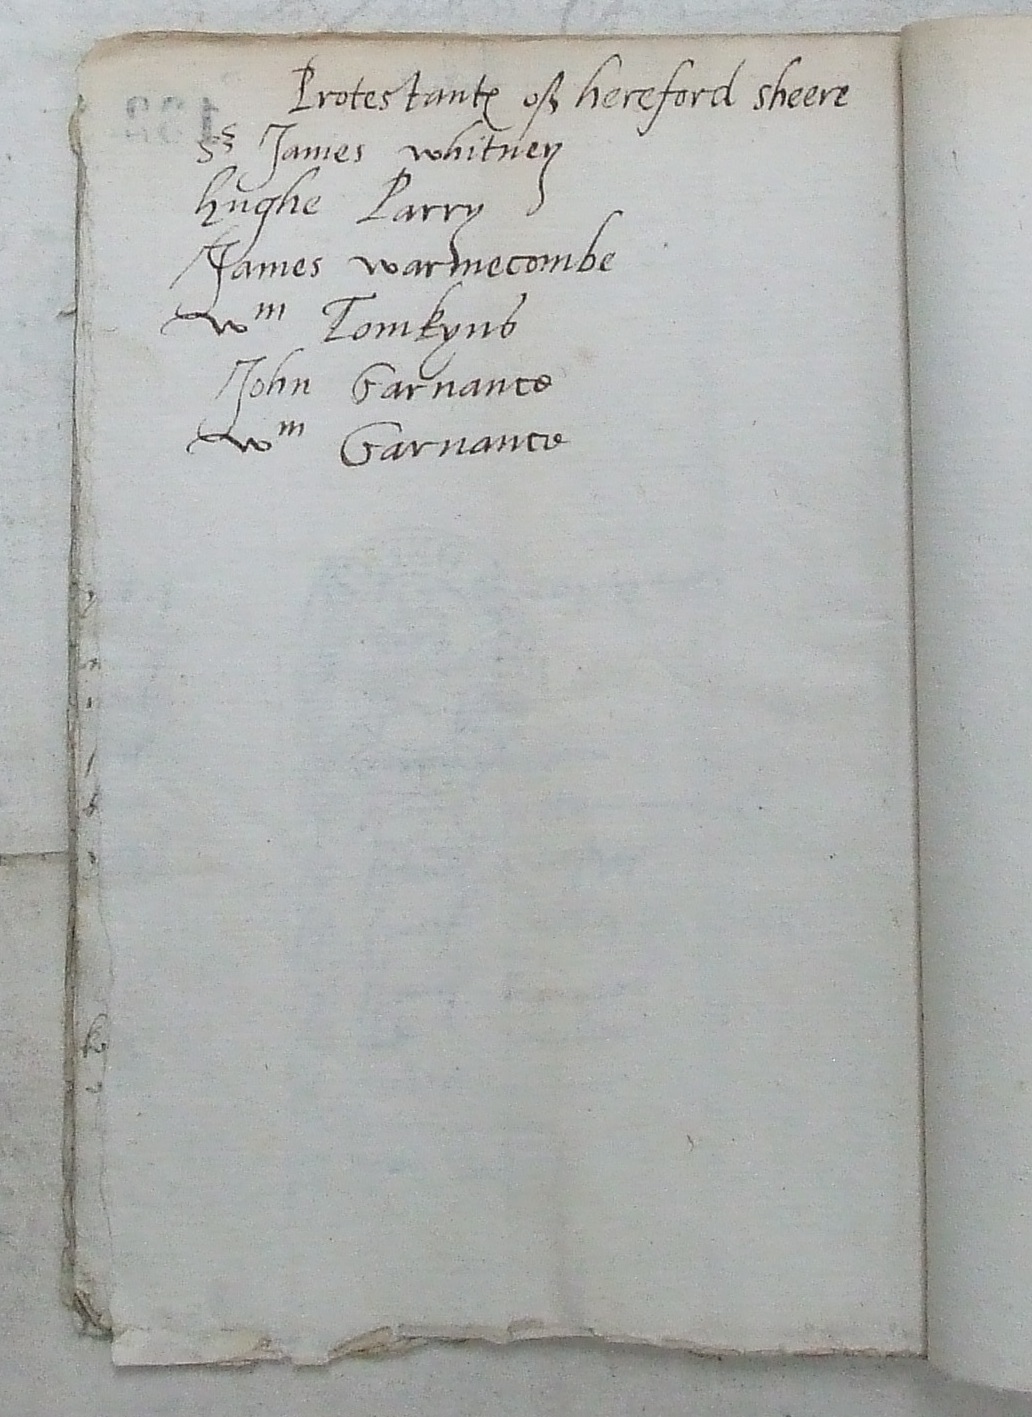 Protestantꝭ off hereford sheere
Sr James whitney
hughe Parry
James warmecombe
Wm Tomkyns
John Garnance
Wm Garnance